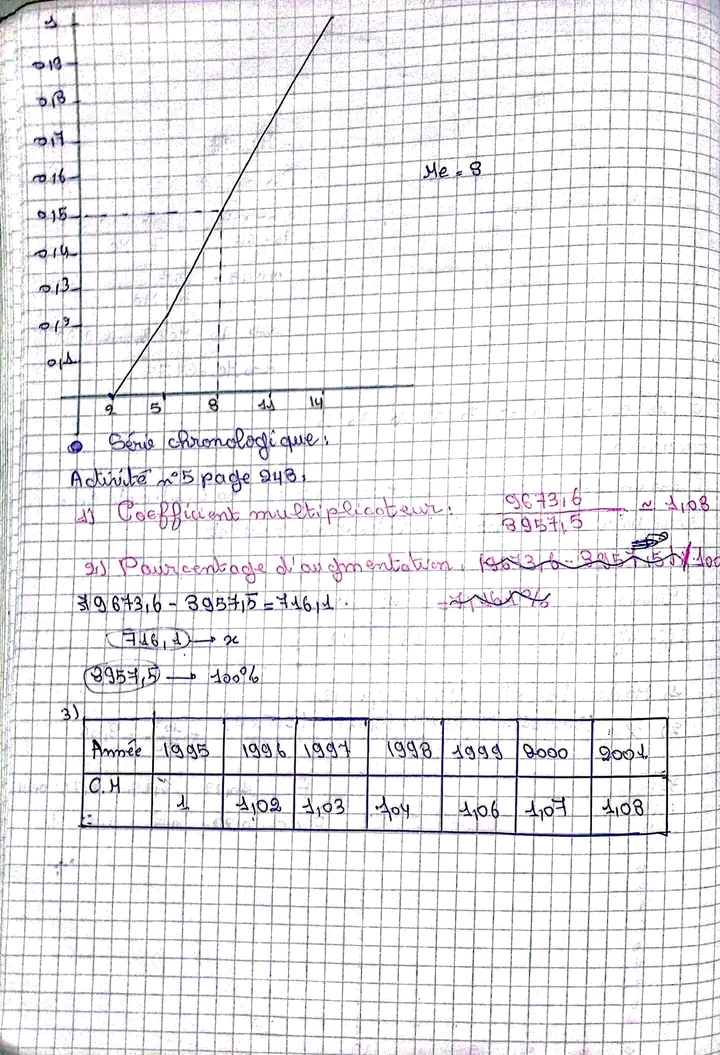 1
0,9
0,8
0,7
0,6
Me = 8
0,5
0,4
0,3
0,2
0,1
2 5 8 11 14
Série chronologique :
Activité n°5 page 248.
1) Coefficient multiplicateur : 9673,6 / 8957,5 ≈ 1,08
2) Pourcentage d'augmentation.
9673,6 - 8957,5 = 716,1.
716,1 → x
8957,5 → 100%
3)
Année 1995 1996 1997 1998 1999 2000 2001
C.M 1 1,02 1,03 1,04 1,06 1,07 1,08